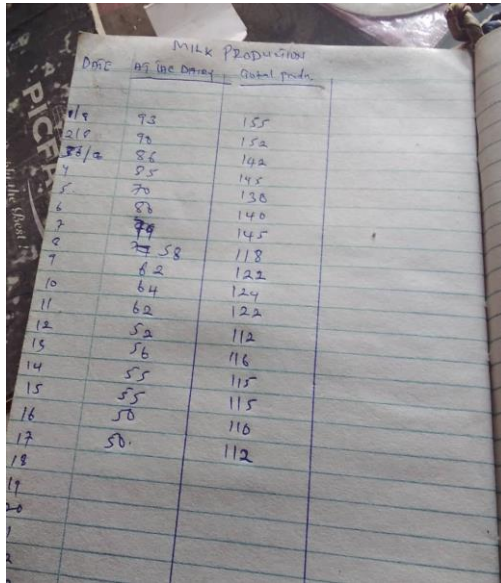 MILK PRODUCTION
DATE AT THE DAIRY Total prodn.
1/8 93 155
2/8 90 152
3/8 86 142
4 85 145
5 70 130
6 80 140
7 79 145
8 58 118
9 62 122
10 64 124
11 62 122
12 52 112
13 56 116
14 55 115
15 55 115
16 50 110
17 50. 112
18
19
20
PICFA
the Best!